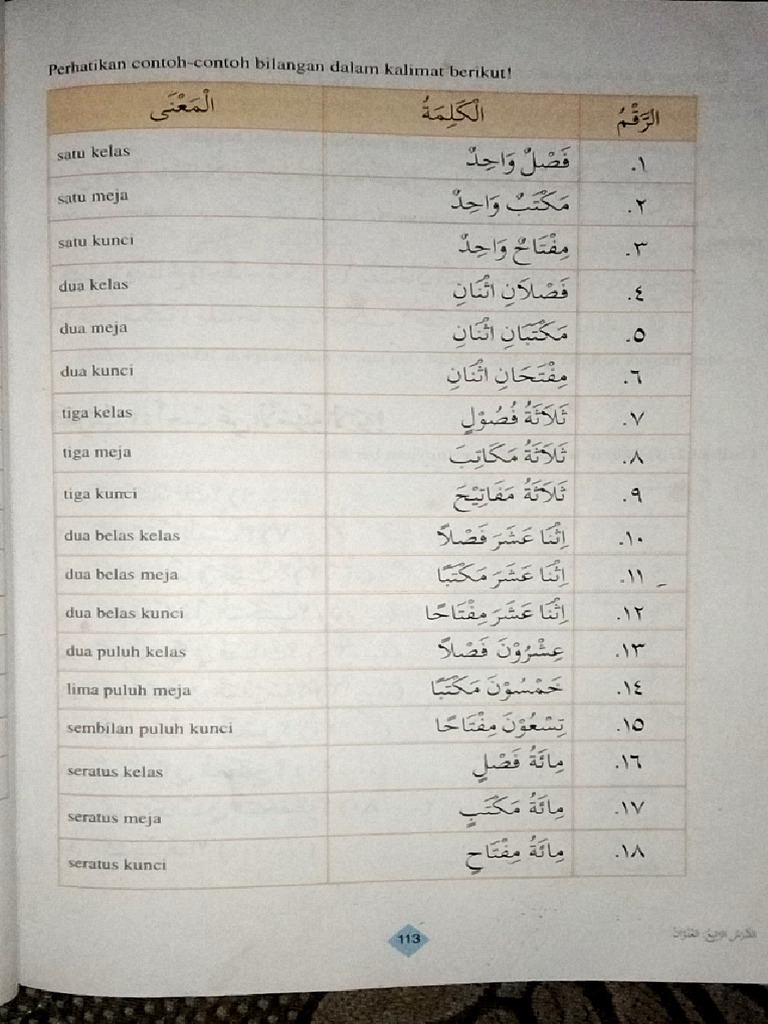 Perhatikan contoh-contoh bilangan dalam kalimat berikut!
الرَّقْمُ الْكَلِمَةُ الْمَعْنَى
١. فَصْلٌ وَاحِدٌ satu kelas
٢. مَكْتَبٌ وَاحِدٌ satu meja
٣. مِفْتَاحٌ وَاحِدٌ satu kunci
٤. فَصْلَانِ اثْنَانِ dua kelas
٥. مَكْتَبَانِ اثْنَانِ dua meja
٦. مِفْتَحَانِ اثْنَانِ dua kunci
٧. ثَلَاثَةُ فُصُوْلٍ tiga kelas
٨. ثَلَاثَةُ مَكَاتِبَ tiga meja
٩. ثَلَاثَةُ مَفَاتِيْحَ tiga kunci
١٠. اِثْنَا عَشَرَ فَصْلاً dua belas kelas
١١. اِثْنَا عَشَرَ مَكْتَبًا dua belas meja
١٢. اِثْنَا عَشَرَ مِفْتَاحًا dua belas kunci
١٣. عِشْرُوْنَ فَصْلاً dua puluh kelas
١٤. خَمْسُوْنَ مَكْتَبًا lima puluh meja
١٥. تِسْعُوْنَ مِفْتَاحًا sembilan puluh kunci
١٦. مِائَةُ فَصْلٍ seratus kelas
١٧. مِائَةُ مَكْتَبٍ seratus meja
١٨. مِائَةُ مِفْتَاحٍ seratus kunci
113